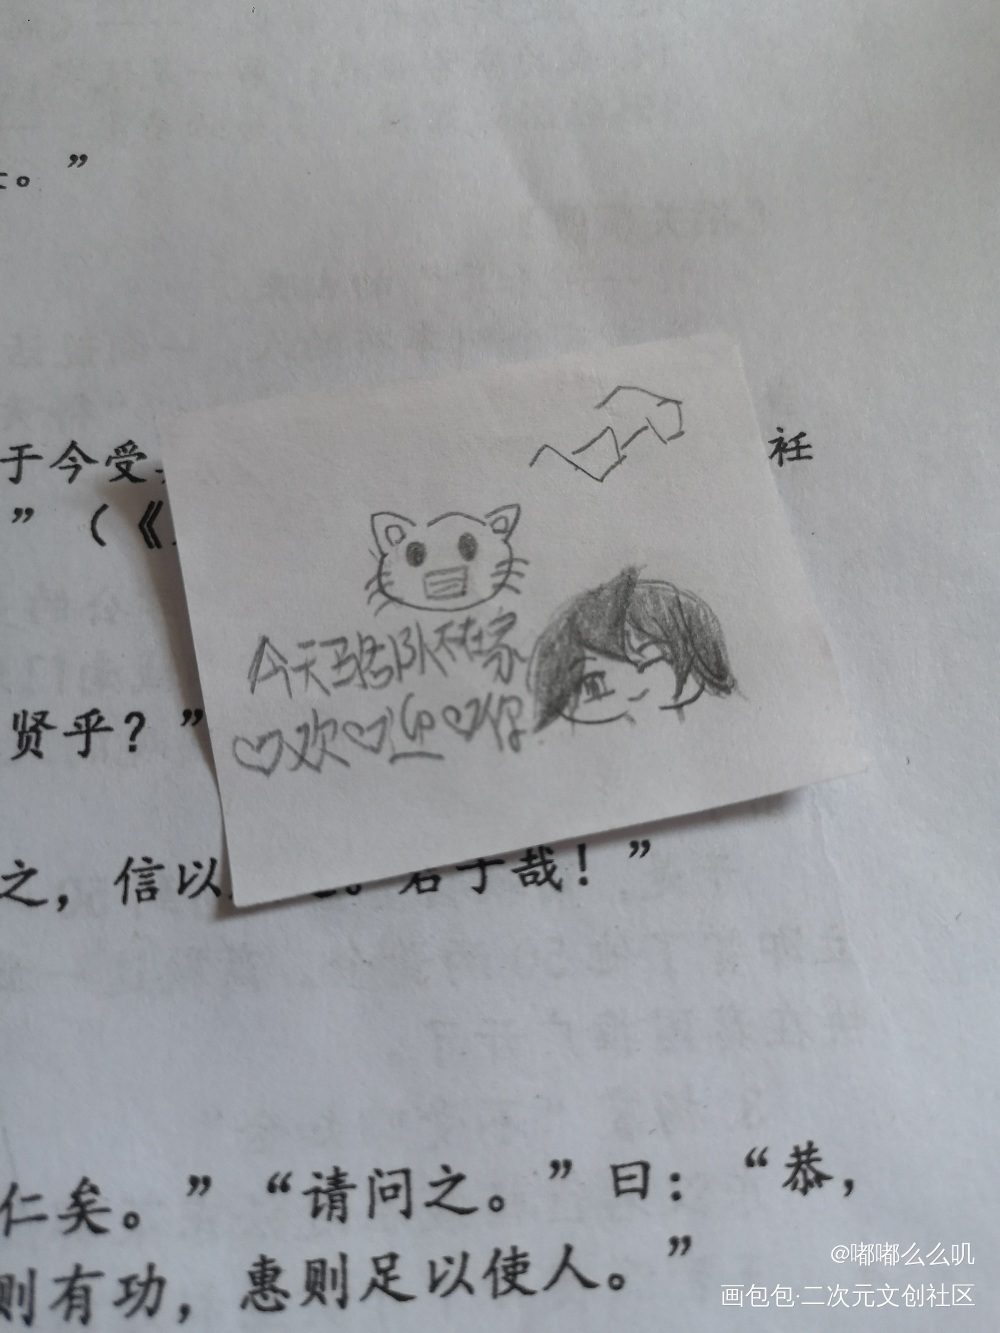 。”
于今受
衽
”（《
今天骆队不在家
♡欢♡迎♡你
贤乎？”
之，信以
。君子哉！”
仁矣。”“请问之。”曰：“恭，
则有功，惠则足以使人。”
@嘟嘟么么叽
画包包·二次元文创社区